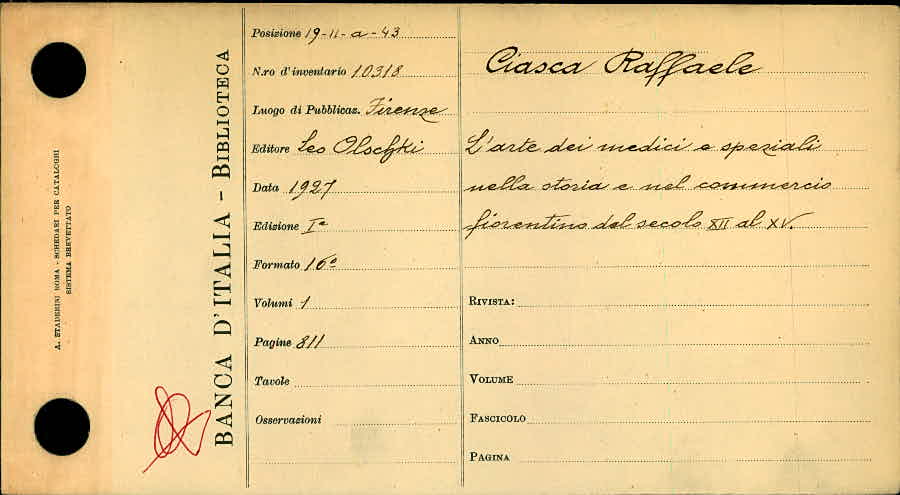 A. STADERINI ROMA - SCHEDARI PER CATALOGHI
SISTEMA BREVETTATO
BANCA D'ITALIA - BIBLIOTECA
Posizione 19-11-a-43
N.ro d'inventario 10318
Luogo di Pubblicaz. Firenze
Editore Leo Olschki
Data 1927
Edizione Iª
Formato 16º
Volumi 1
Pagine 811
Tavole
Osservazioni
Ciasca Raffaele
L'arte dei medici e speziali
nella storia e nel commercio
fiorentino dal secolo XII al XV.
RIVISTA:
ANNO
VOLUME
FASCICOLO
PAGINA